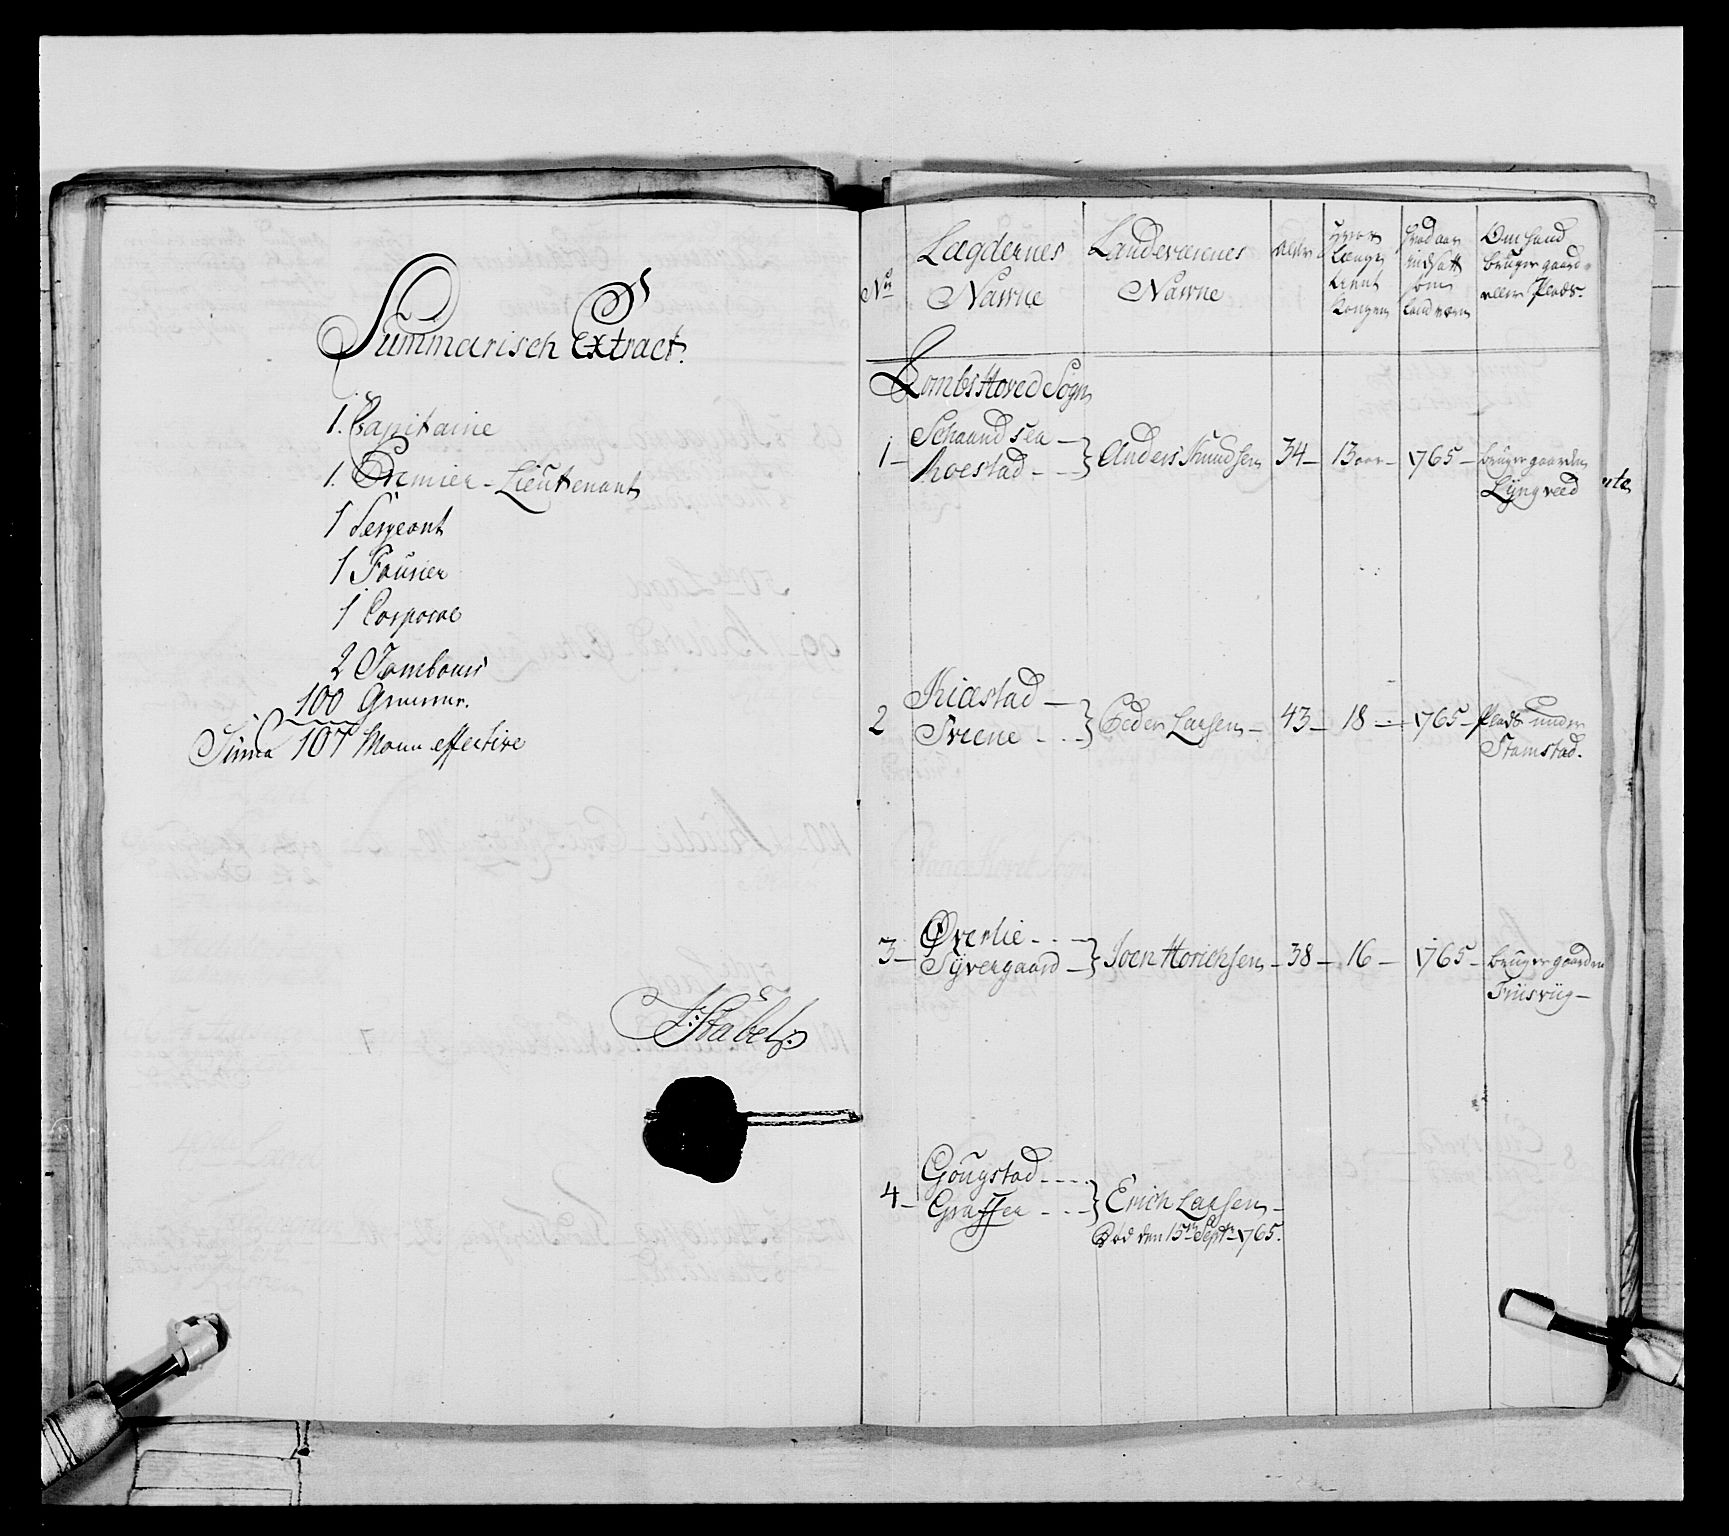 Summarisch Extract.
1. Capitaine
1. Premier-Lieutenant
1 Sergeant
1 Fourier
1 Corporal
2 Tambours
100 Gemene.
Suma 107 Mann effective
J: Stabel
No
Lægdernes
Nawne
Landeværnes
Nawne
Alder
hvor
længe
tient
Kongen
hvad aar
indsatt
som
Landværn
Om hand
bruger gaard
eller Plads.
Lombs Hoved Sogn
1 - Schaandsea -
Roestad - - } Anders Knudsen 34 - 13 aar - 1765 - bruger gaarden
Lyngveed
2 Kiæstad -
Sveene - - } Peder Larsen - 43 - 18 - 1765 - Plads under
Stamstad.
3 - Øverlie - -
Syvergaard - } Joen Horichsen - 38 - 16 - 1765 - bruger gaarden
4 - Gougstad - - -
Graffer - - - } Erich Larsen -
Død den 15de Septr 1765.